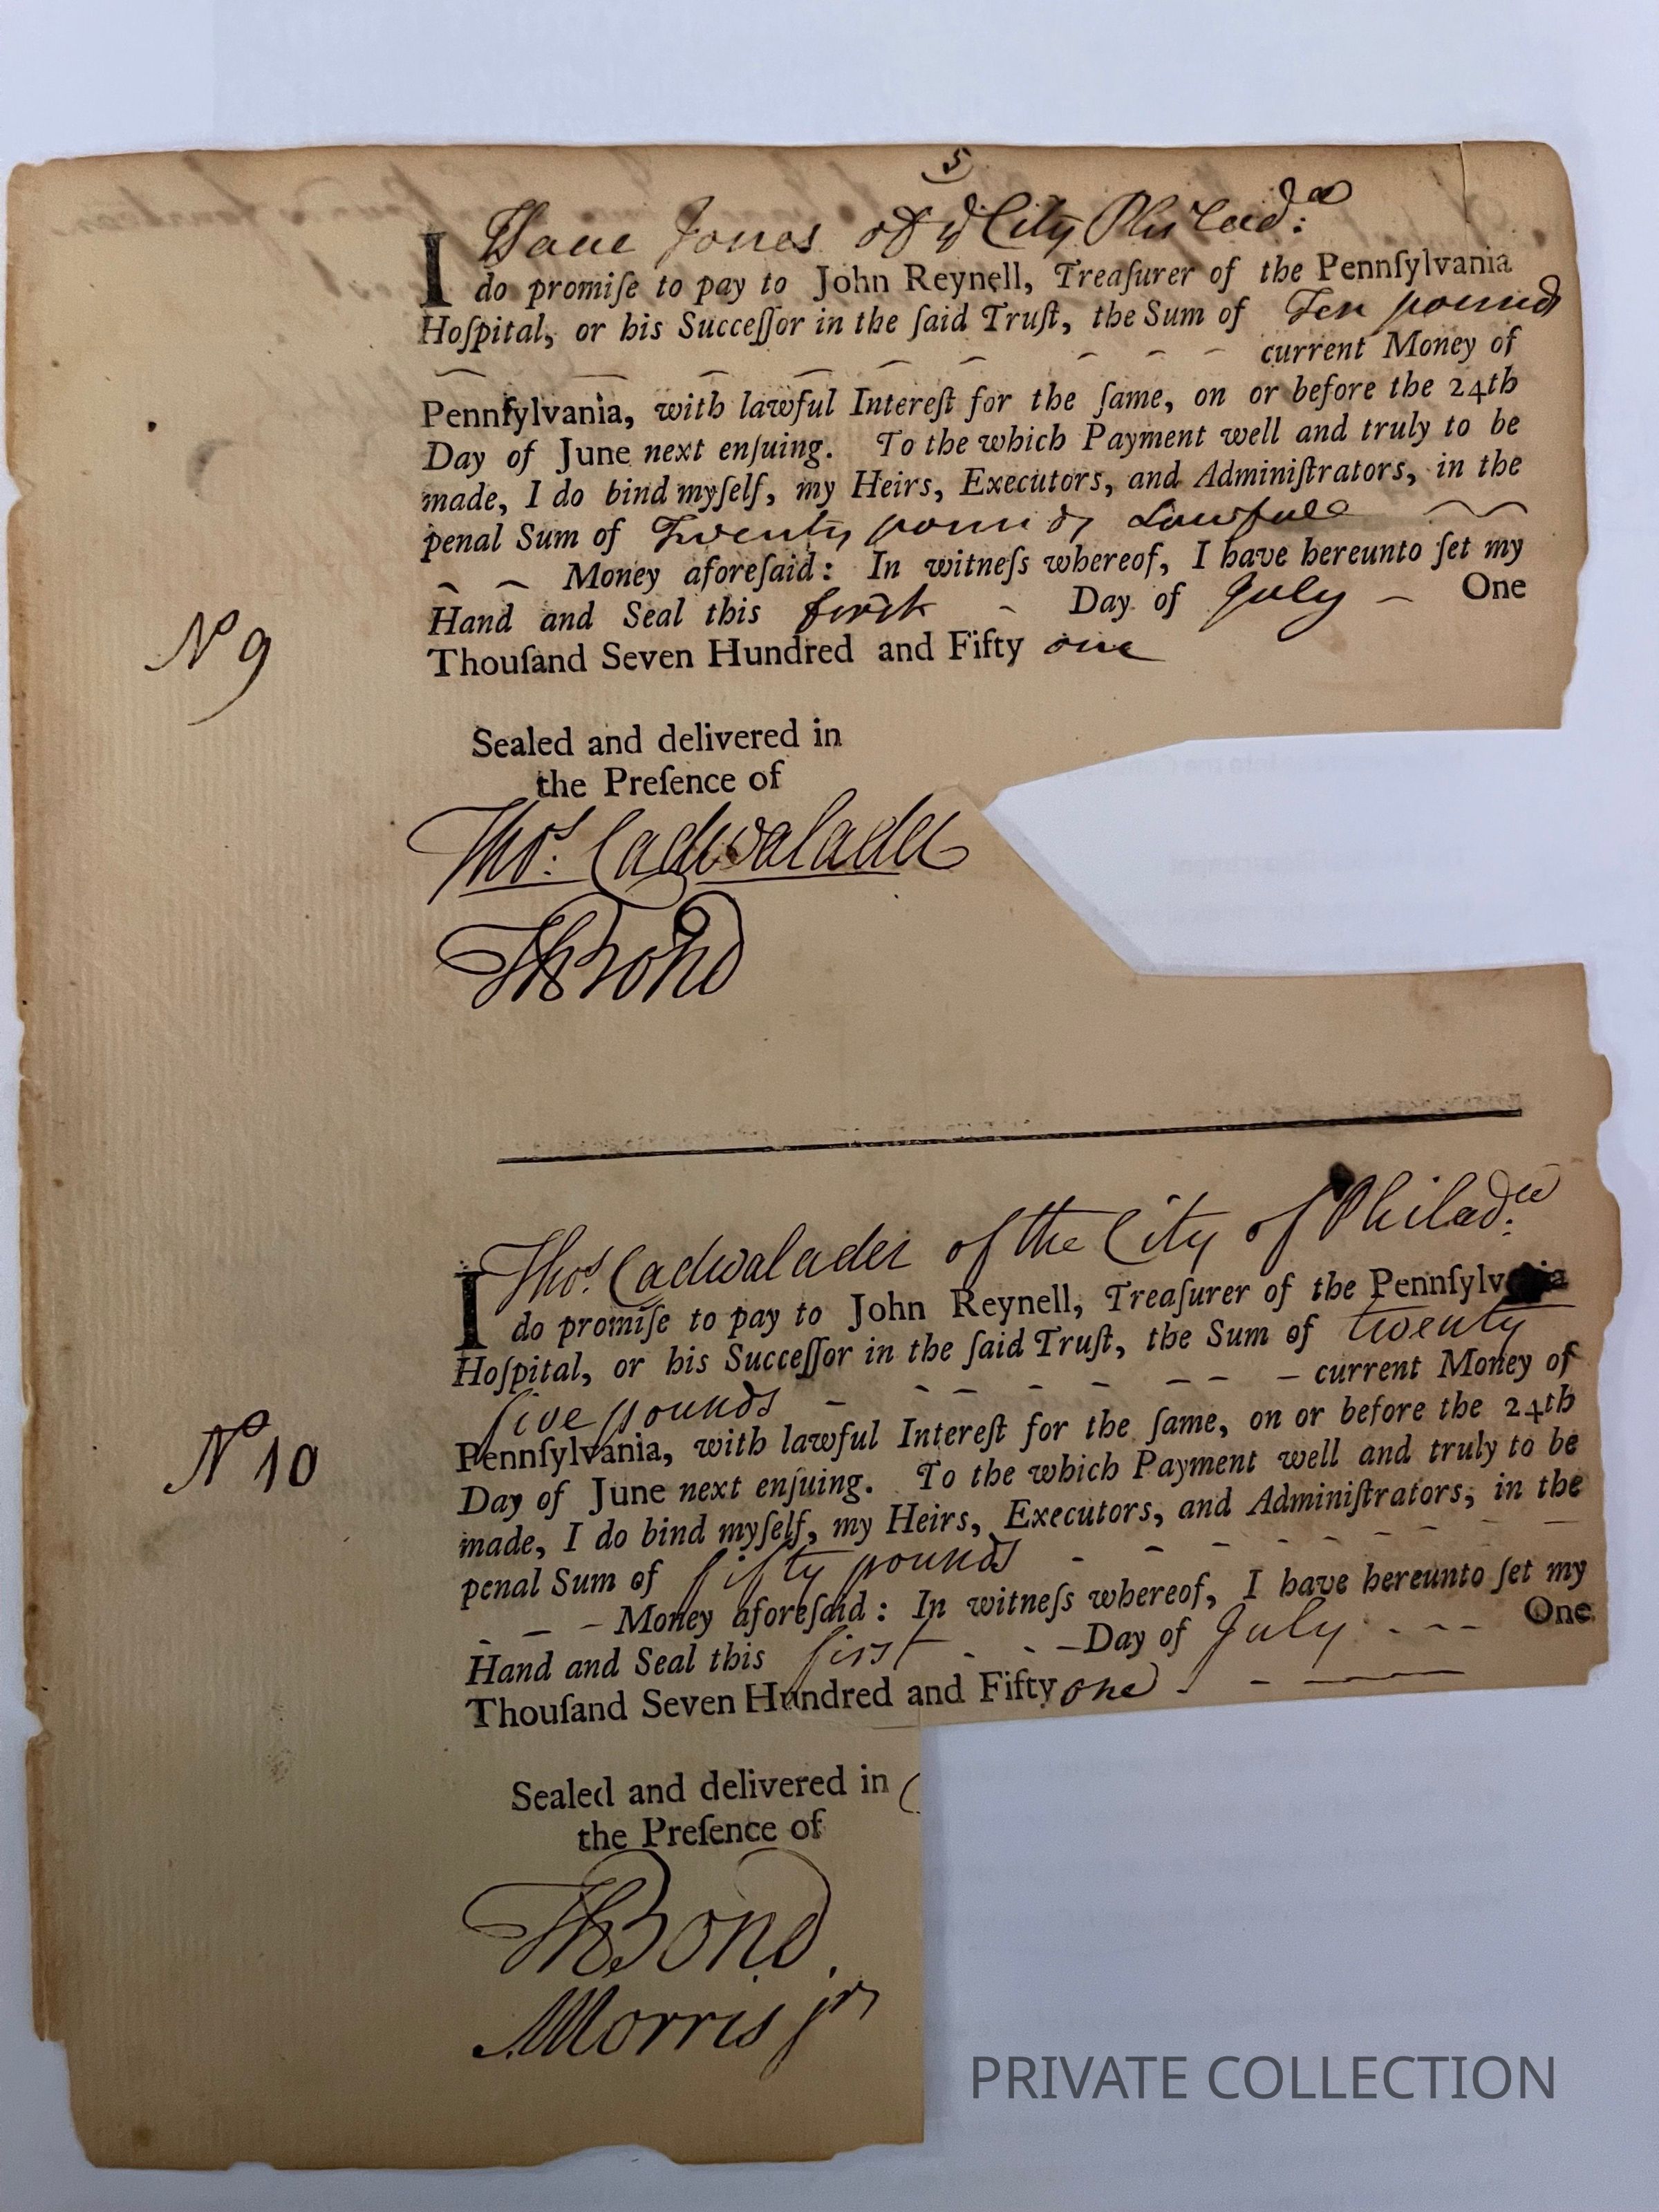 5
I Isaac Jones of ye City Philad:a
do promiſe to pay to John Reynell, Treaſurer of the Pennſylvania
Hoſpital, or his Succeſſor in the ſaid Truſt, the Sum of Ten pounds
current Money of
Pennſylvania, with lawful Intereſt for the ſame, on or before the 24th
Day of June next enſuing. To the which Payment well and truly to be
made, I do bind myſelf, my Heirs, Executors, and Adminiſtrators, in the
penal Sum of Twenty pounds Lawfull
Money aforeſaid: In witneſs whereof, I have hereunto ſet my
Hand and Seal this first - Day of July - One
Thouſand Seven Hundred and Fifty one
No 9
Sealed and delivered in
the Preſence of
Thos. Cadwalader
Th Bond
I Thos. Cadwalader of the City of Philad:a
do promiſe to pay to John Reynell, Treaſurer of the Pennſylvania
Hoſpital, or his Succeſſor in the ſaid Truſt, the Sum of twenty
five pounds - - - - - - - - current Money of
Pennſylvania, with lawful Intereſt for the ſame, on or before the 24th
Day of June next enſuing. To the which Payment well and truly to be
made, I do bind myſelf, my Heirs, Executors, and Adminiſtrators, in the
penal Sum of fifty pounds - - - - - - -
- - - Money aforeſaid: In witneſs whereof, I have hereunto ſet my
Hand and Seal this first - - - Day of July - - - One
Thouſand Seven Hundred and Fifty one - - -
No 10
Sealed and delivered in
the Preſence of
Th Bond
Morris jr
PRIVATE COLLECTION